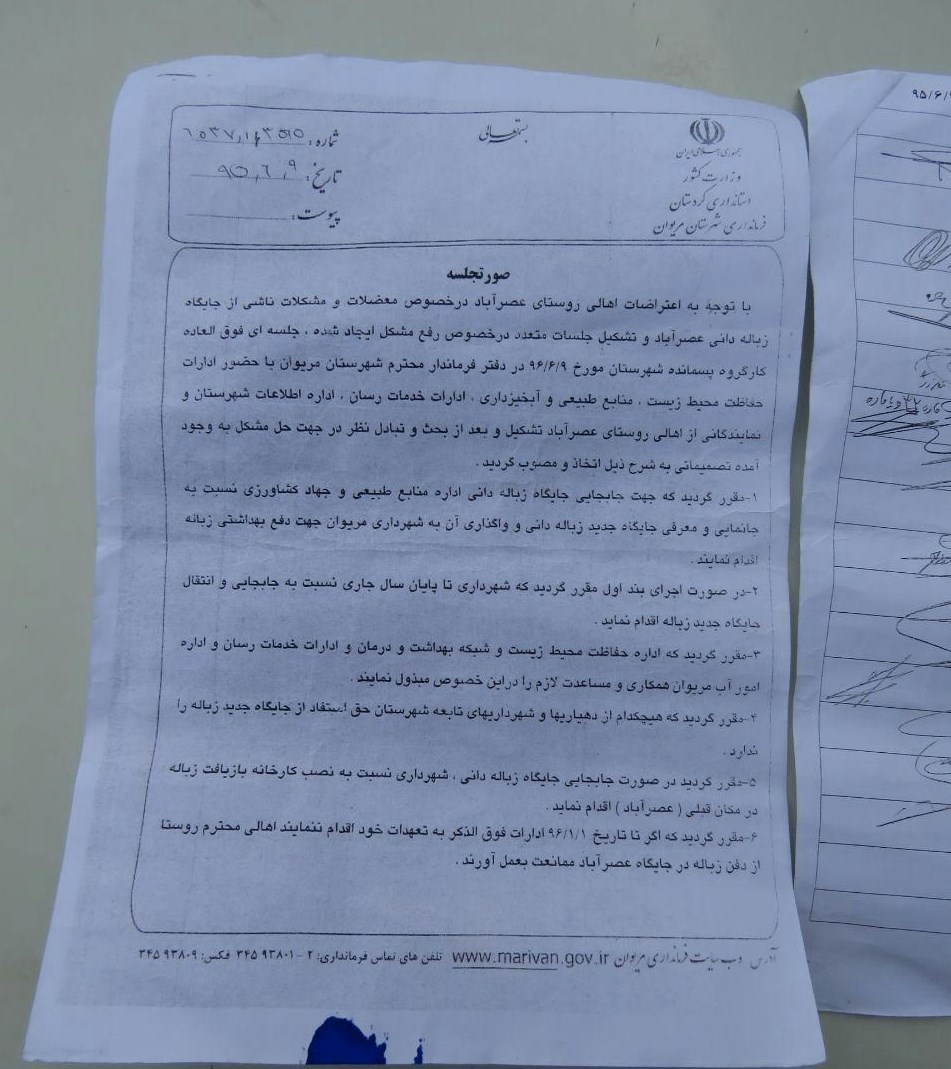 بسمه تعالی
جمهوری اسلامی ایران
وزارت کشور
استانداری کردستان
فرمانداری شهرستان مریوان
شماره:
تاریخ: ۹۵,۶,۹
پیوست:
صورتجلسه
با توجه به اعتراضات اهالی روستای عصرآباد درخصوص معضلات و مشکلات ناشی از جایگاه
زباله دانی عصرآباد و تشکیل جلسات متعدد درخصوص رفع مشکل ایجاد شده ، جلسه ای فوق العاده
کارگروه پسمانده شهرستان مورخ ۹۶/۶/۹ در دفتر فرماندار محترم شهرستان مریوان با حضور ادارات
حفاظت محیط زیست ، منابع طبیعی و آبخیزداری ، ادارات خدمات رسان ، اداره اطلاعات شهرستان و
نمایندگانی از اهالی روستای عصرآباد تشکیل و بعد از بحث و تبادل نظر در جهت حل مشکل به وجود
آمده تصمیماتی به شرح ذیل اتخاذ و مصوب گردید .
۱-مقرر گردید که جهت جابجایی جایگاه زباله دانی اداره منابع طبیعی و جهاد کشاورزی نسبت به
جانمایی و معرفی جایگاه جدید زباله دانی و واگذاری آن به شهرداری مریوان جهت دفع بهداشتی زباله
اقدام نمایند .
۲-در صورت اجرای بند اول مقرر گردید که شهرداری تا پایان سال جاری نسبت به جابجایی و انتقال
جایگاه جدید زباله اقدام نماید .
۳-مقرر گردید که اداره حفاظت محیط زیست و شبکه بهداشت و درمان و ادارات خدمات رسان و اداره
امور آب مریوان همکاری و مساعدت لازم را دراین خصوص مبذول نمایند .
۴-مقرر گردید که هیچکدام از دهیاریها و شهرداریهای تابعه شهرستان حق استفاد از جایگاه جدید زباله را
ندارد .
۵-مقرر گردید در صورت جابجایی جایگاه زباله دانی ، شهرداری نسبت به نصب کارخانه بازیافت زباله
در مکان قبلی ( عصرآباد ) اقدام نماید .
۶-مقرر گردید که اگر تا تاریخ ۹۶/۱/۱ ادارات فوق الذکر به تعهدات خود اقدام ننمایند اهالی محترم روستا
از دفن زباله در جایگاه عصرآباد ممانعت بعمل آورند .
آدرس وب سایت فرمانداری مریوان www.marivan.gov.ir تلفن های تماس فرمانداری: ۲ - ۹۳۸۰۱ ۳۴۵ فکس: ۹۳۸۰۹ ۳۴۵